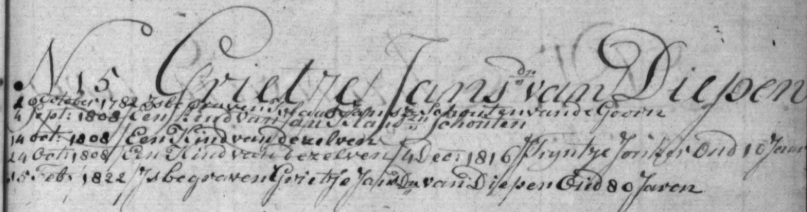 N 15 Grietze Jans dr van Diepen
2 October 1782 Is begraven Jan Schouten van de Goorn
4 Sept: 1808 Een Kind van Schouten
14 oct: 1808 Een Kind van dezelven
24 Oct: 1808 Een Kind van dezelven 4 Dec: 1816 Tryntze Jonker Oud 10 Jaar
15 Feb: 1822 Is begraven Grietje Jans Dr van Diepen Oud 80 Jaren